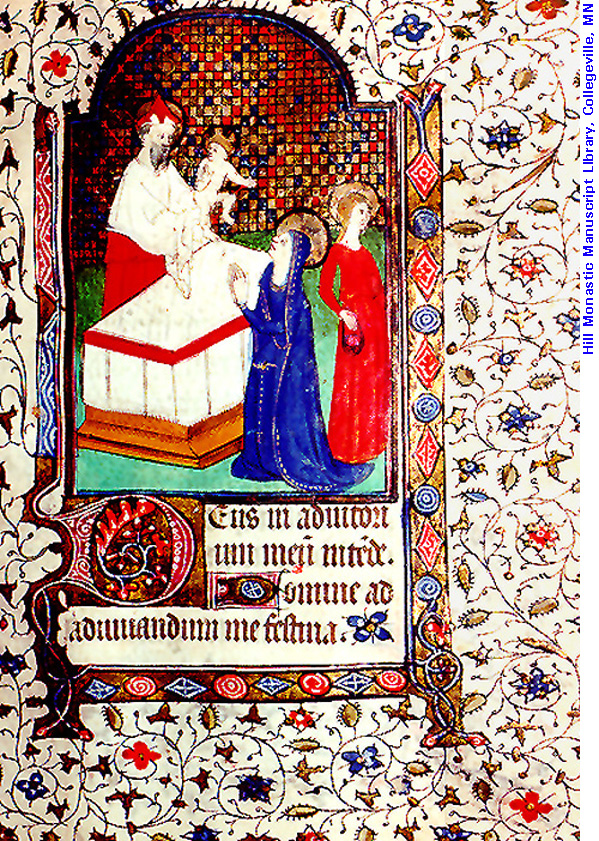 Deus in adiutori
um meū intēde.
Domine ad
adiuuandum me festina.
Hill Monastic Manuscript Library, Collegeville, MN